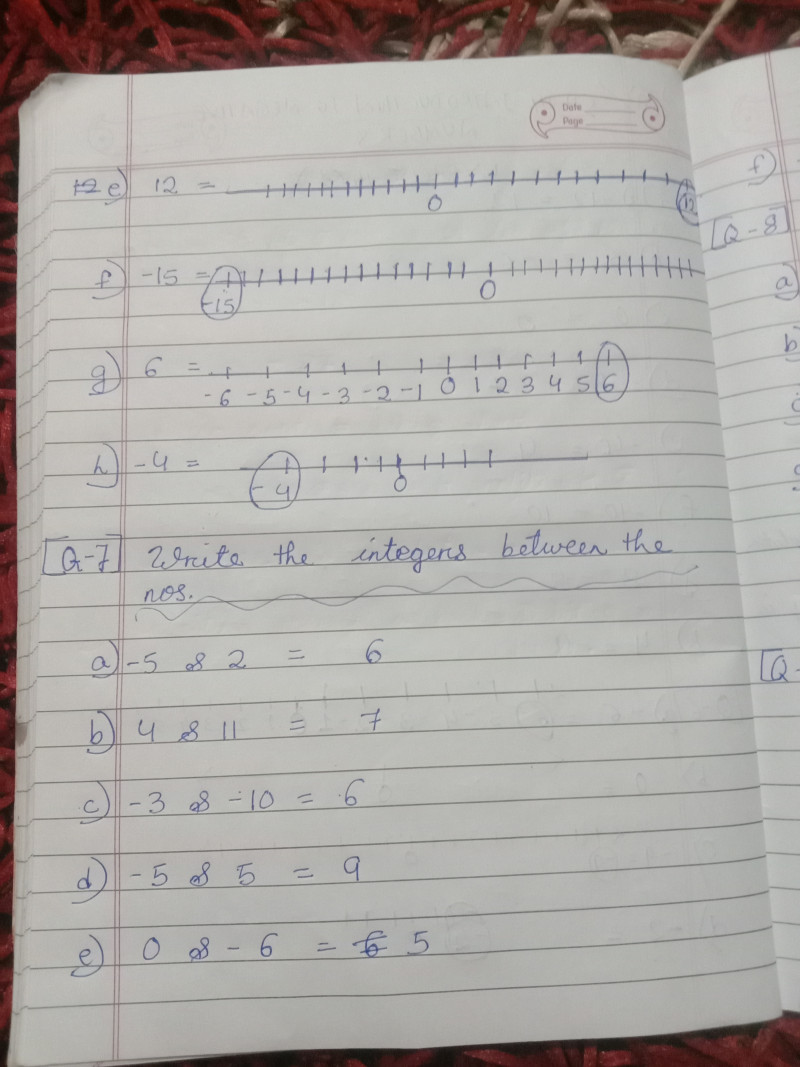 Date
Page
12 e) 12 =
0 12
f) -15 =
-15 0
g) 6 =
-6 -5 -4 -3 -2 -1 0 1 2 3 4 5 6
h) -4 =
-4 0
[Q-7] Write the integers between the
nos.
a) -5 & 2 = 6
b) 4 & 11 = 7
c) -3 & -10 = 6
d) -5 & 5 = 9
e) 0 & -6 = 6 5
f)
[Q-8]
a)
b
c
[Q-